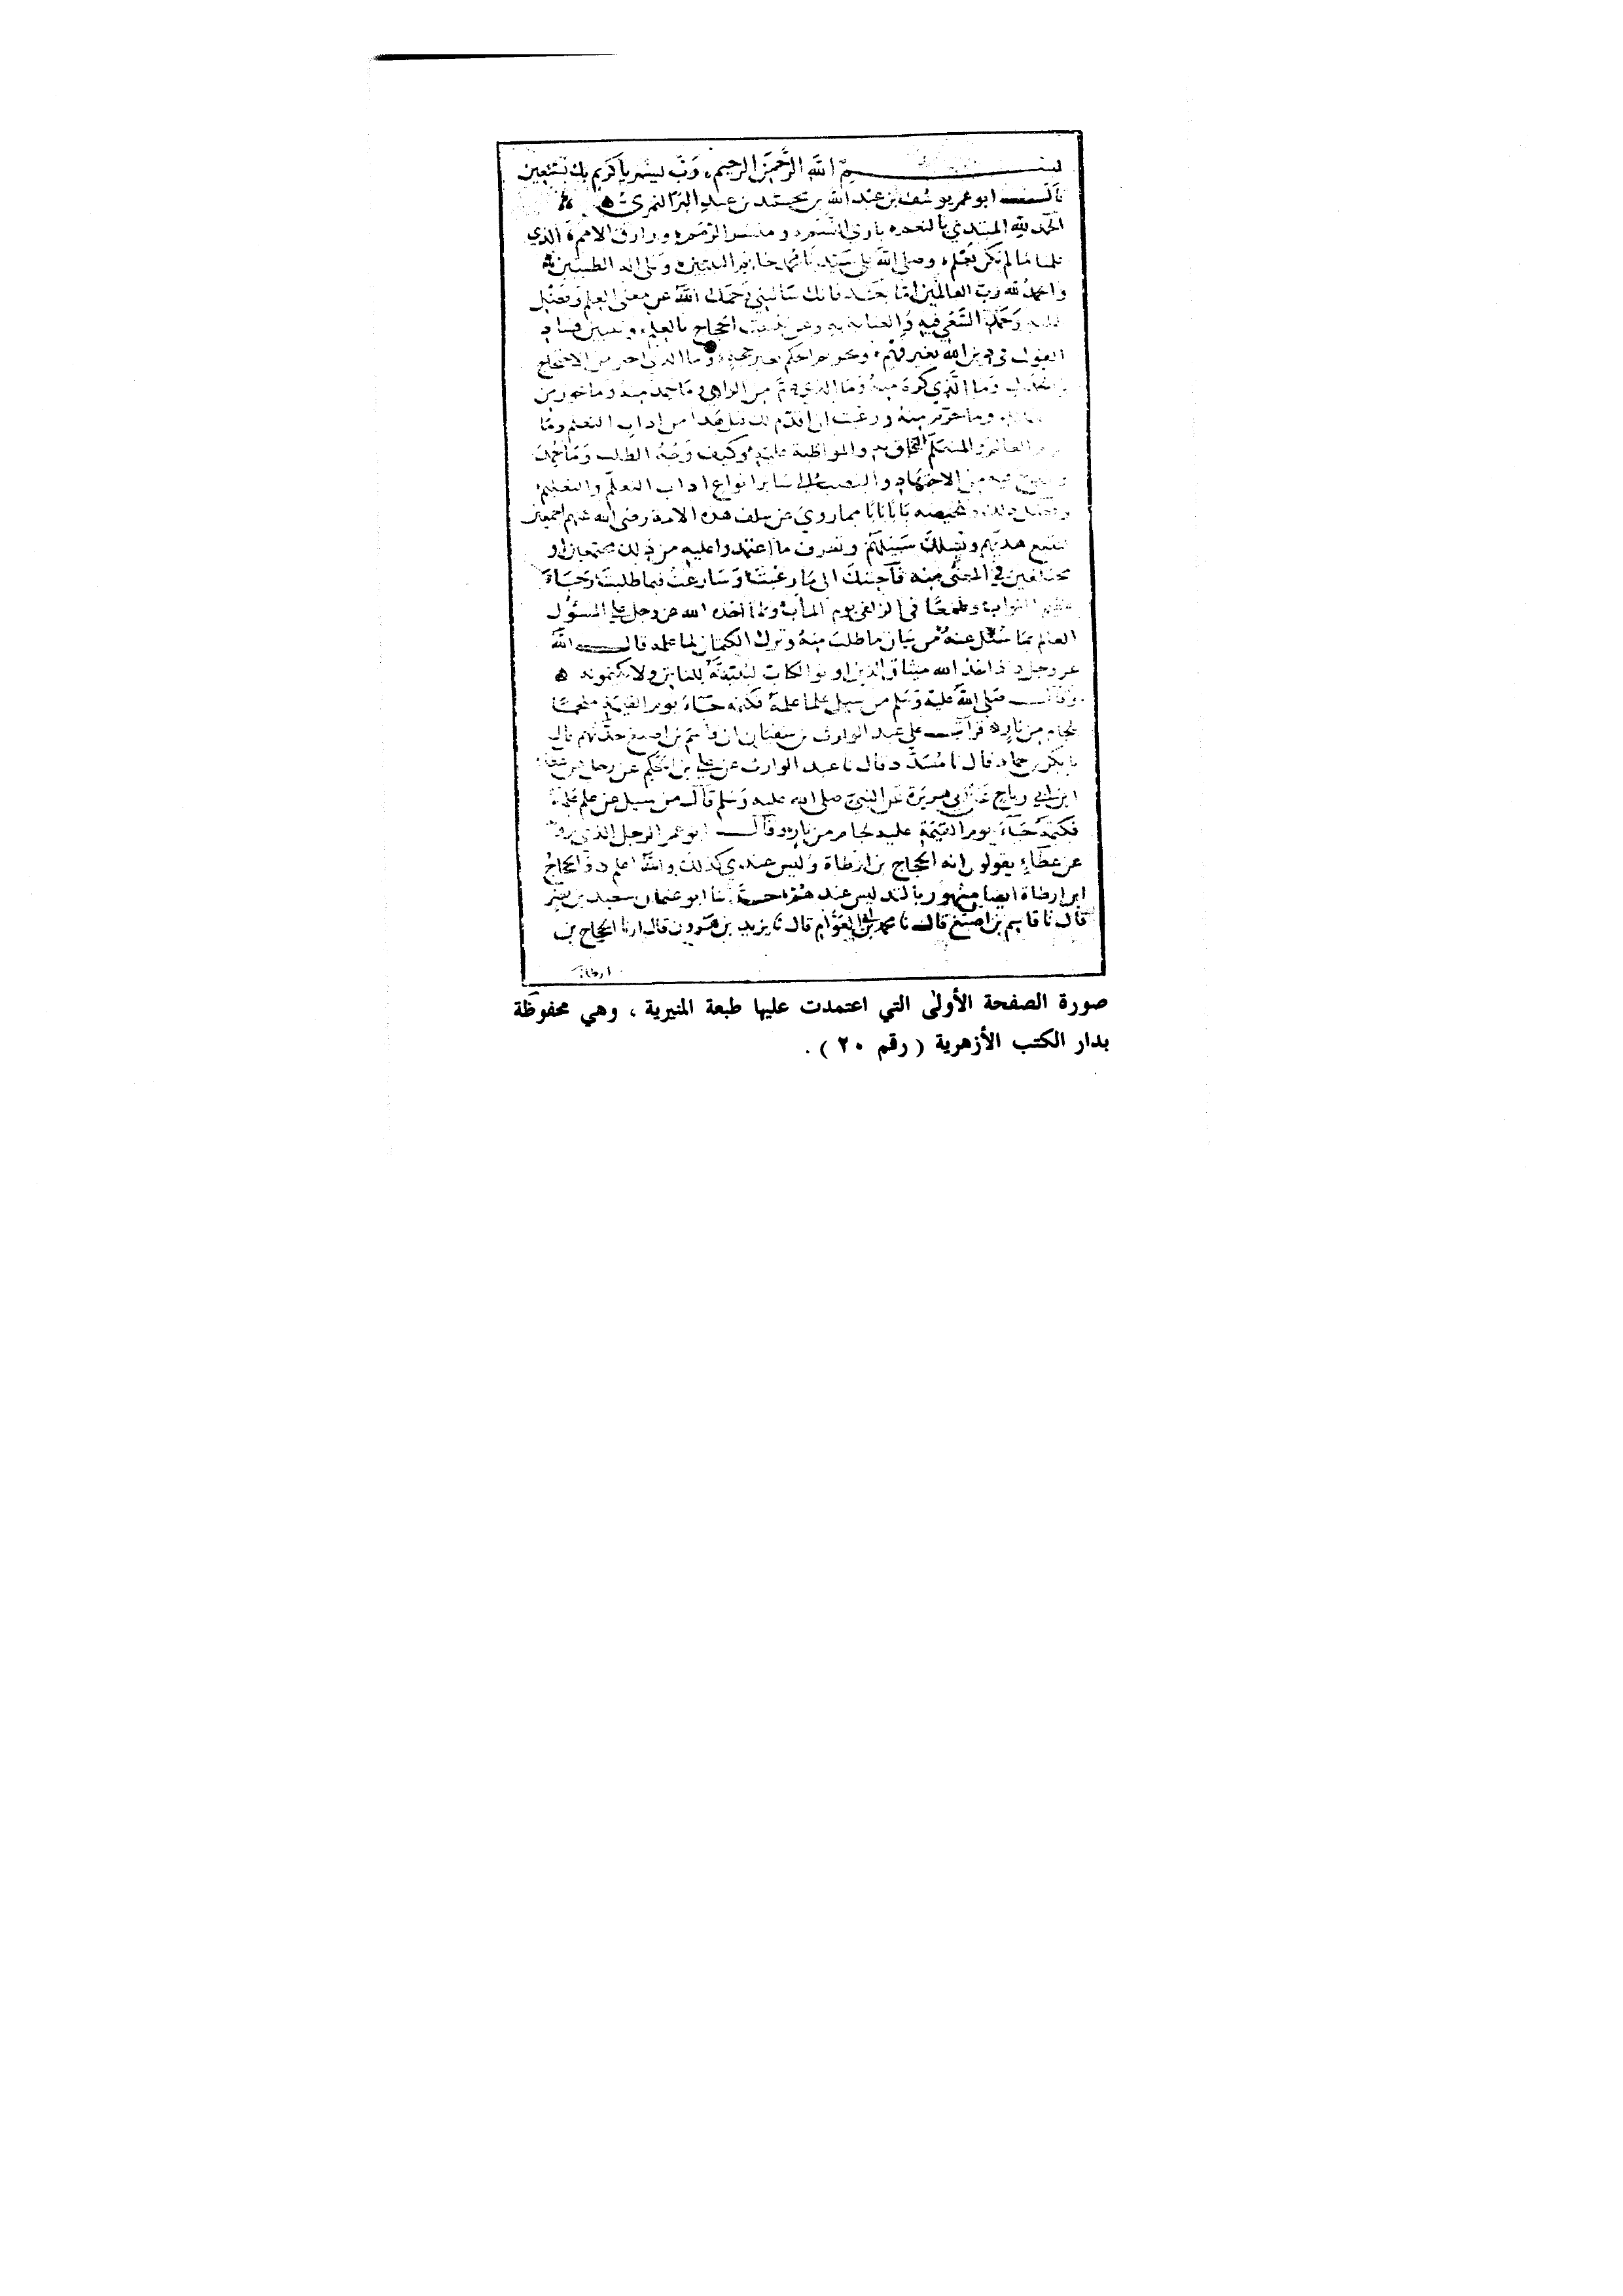 بسم الله الرحمن الرحيم، رب يسر يا كريم بك نستعين
قال ابو عمر يوسف بن عبد الله بن محمد بن عبد البر النمري
الحمد لله المبتدي بالنعم باري النسم ومنشر الرمم ورازق الامم الذي
علمنا ما لم نكن نعلم وصلى الله على سيدنا محمد خاتم النبيين وعلى اله الطيبين
والحمد لله رب العالمين اما بعد فانك سالتني رحمك الله عن معنى العلم وفضل
وحمد السعي فيه والعناية به وعن تثبيت الحجاج بالعلم وتبيين فساد
القول في دين الله بغير فهم وتحريم الحكم بغير حجة وما الذي اجيز من الاحتجاج
وما الذي كره منه وما الذي ذم من الراي وما حمد منه وما جوز من
وما حرم منه ورغبت ان اقدم لك قبل هذا من اداب التعلم وما
العالم والمتعلم التخلق به والمواظبة عليه وكيف وجه الطلب وما حمد
فيه من الاجتهاد والنصب الى سائر انواع اداب التعلم والتعليم
وفضل ذلك وتلخيصه بابا بابا مما روي عن سلف هذه الامة رضي الله عنهم اجمعين
لتتبع هديهم وتسلك سبيلهم وتعرف ما اعتمدوا عليه من ذلك مجتمعين او
مختلفين في المعنى منه فاجبتك الى ما رغبت وسارعت فيما طلبت رجاء
عظيم الثواب وطمعا في الزلفى يوم المآب ولما اخذه الله عز وجل على المسئول
العالم بما سئل عنه من بيان ما طلب منه وترك الكتمان لما علمه قال الله
عز وجل واذ اخذ الله ميثاق الذين اوتوا الكتاب لتبيننه للناس ولا تكتمونه
وقال صلى الله عليه وسلم من سيل علما علمه فكتمه جاء يوم القيمة ملجما
بلجام من نار قرات على عبد الوارث بن سفيان ان قاسم بن اصبغ حدثهم قال
نا بكر بن حماد قال نا مسدد قال نا عبد الوارث عن علي بن الحكم عن رجل عن عطاء
ابن ابي رباح عن ابي هريرة عن النبي صلى الله عليه وسلم قال من سيل عن علم علمه
فكتمه جاء يوم القيمة عليه لجام من نار وقال ابو عمر الرجل الذي يرويه
عن عطاء يقولون انه الحجاج بن ارطاة وليس عندي كذلك والله اعلم والحجاج
ابن ارطاة ايضا مشهور بالتدليس عندهم نا ابو عثمان سعيد بن نصر
قال نا قاسم بن اصبغ قال نا محمد بن ابي العوام قال نا يزيد بن هرون قال ارنا الحجاج بن
ارطاة
صورة الصفحة الأولى التي اعتمدت عليها طبعة المنيرية ، وهي محفوظة
بدار الكتب الأزهرية ( رقم ٢٠ ) .